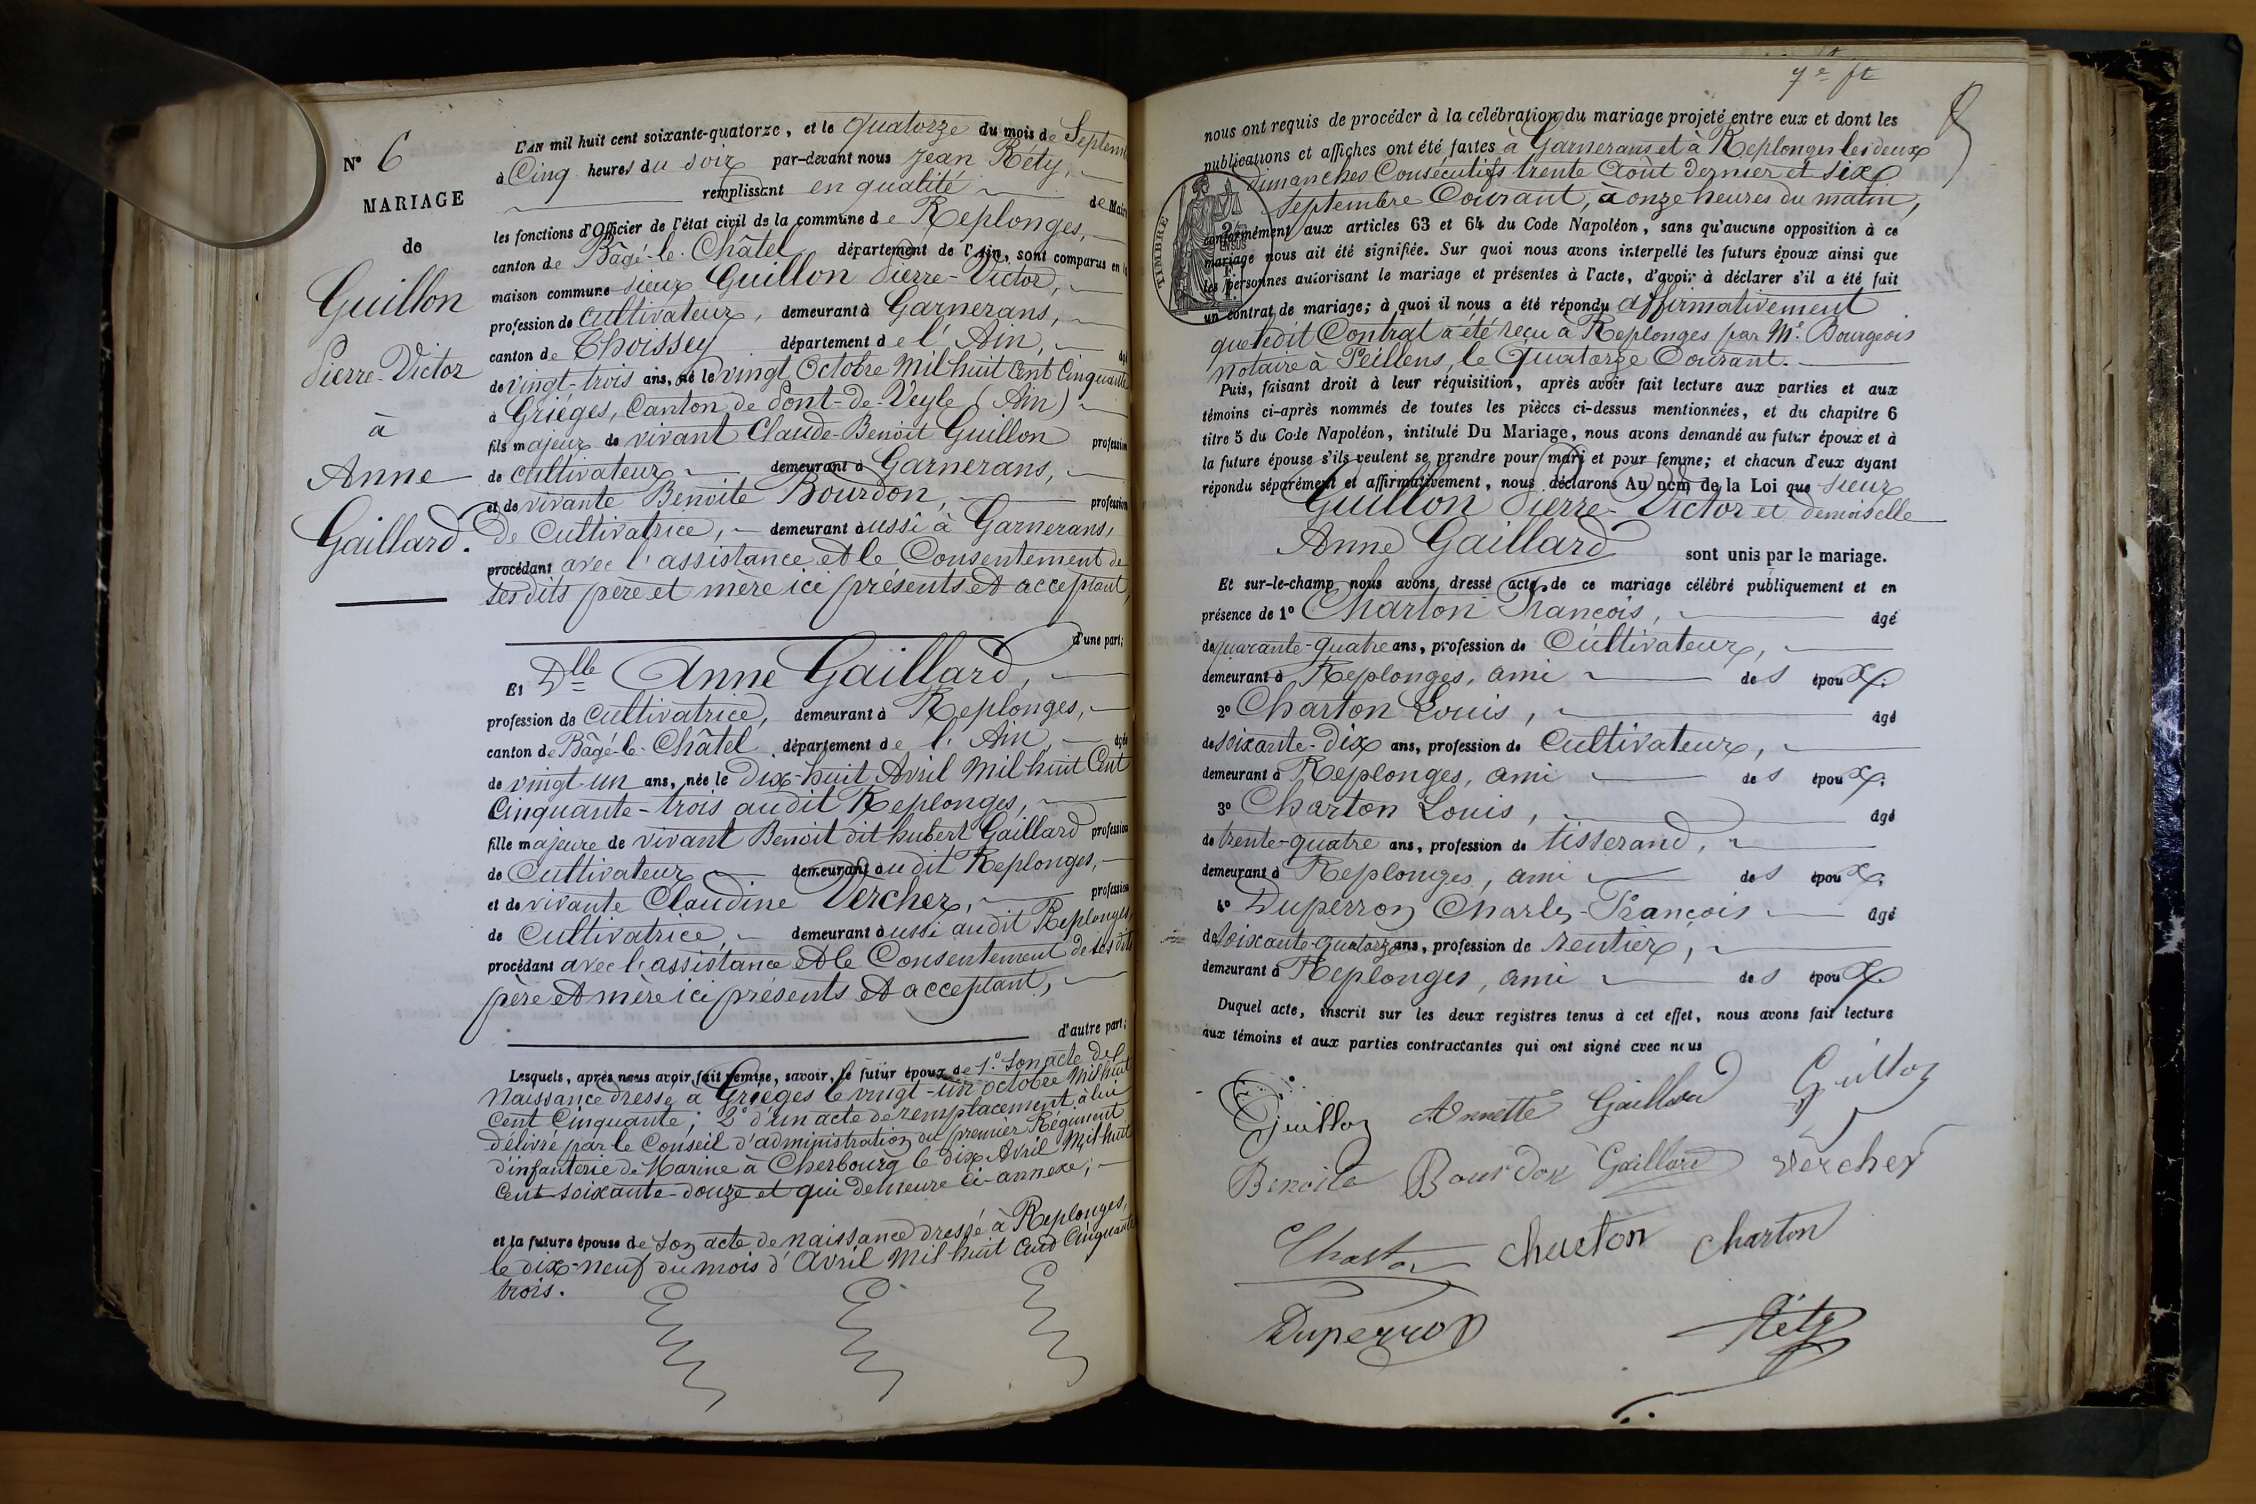 N° 6
MARIAGE
de
Guillon
Pierre-Victor
à
Anne
Gaillard.
L'AN mil huit cent soixante-quatorze, et le quatorze du mois de Septem
à Cinq heures du soir par-devant nous Jean Réty,
remplissant en qualité de Maire
les fonctions d'Officier de l'état civil de la commune de Replonges,
canton de Bâgé-le-Châtel département de l'Ain, sont comparus en la
maison commune sieur Guillon Pierre-Victor,
profession de cultivateur, demeurant à Garnerans,
canton de Thoissey département de l'Ain, âgé
de vingt-trois ans, né le vingt Octobre Mil huit Cent Cinquante
à Grièges, Canton de Pont-de-Veyle (Ain)
fils majeur de vivant Claude-Benoit Guillon profession
de cultivateur demeurant à Garnerans,
et de vivante Benoite Bourdon, profession
De Cultivatrice, demeurant aussi à Garnerans,
procédant avec l'assistance et le Consentement de
ses dits père et mère ici présents et acceptant,
d'une part;
Et Dlle Anne Gaillard,
profession de cultivatrice, demeurant à Replonges,
canton de Bâgé-le-Châtel département de l'Ain âgée
de vingt-un ans, née le Dix-huit Avril Mil huit Cent
Cinquante-trois audit Replonges,
fille majeure de vivant Benoit dit hubert Gaillard profession
de Cultivateur demeurant audit Replonges,
et de vivante Claudine Vercher, profession
de Cultivatrice, demeurant aussi audit Replonges,
procédant avec l'assistance et le Consentement de ses dits
père et mère ici présents et acceptant,
d'autre part;
Lesquels, après nous avoir fait remise, savoir, le futur époux de 1° son acte de
Naissance dressé à Grièges le vingt-un octobre Mil huit
Cent Cinquante; 2° d'un acte de remplacement à lui
délivré par le Conseil d'administration du premier Régiment
d'infanterie de Marine à Cherbourg le dix Avril Mil huit
Cent-soixante-douze et qui demeure ci-annexé;
et la future épouse de son acte de naissance dressé à Replonges,
le dix-neuf du mois d'Avril Mil huit Cent Cinquante
trois.
7e ft
nous ont requis de procéder à la célébration du mariage projeté entre eux et dont les
publications et affiches ont été faites à Garnerans et à Replonges les deux
dimanches Consécutifs trente Août dernier et six
Septembre Courant, à onze heures du matin,
TIMBRE
conformément aux articles 63 et 64 du Code Napoléon, sans qu'aucune opposition à ce
mariage nous ait été signifiée. Sur quoi nous avons interpellé les futurs époux ainsi que
les personnes autorisant le mariage et présentes à l'acte, d'avoir à déclarer s'il a été fait
un contrat de mariage; à quoi il nous a été répondu affirmativement
que ledit Contrat a été reçu à Replonges par Me. Bourgeois
notaire à Peillens, le Quatorze Courant.
Puis, faisant droit à leur réquisition, après avoir fait lecture aux parties et aux
témoins ci-après nommés de toutes les pièces ci-dessus mentionnées, et du chapitre 6
titre 5 du Code Napoléon, intitulé Du Mariage, nous avons demandé au futur époux et à
la future épouse s'ils veulent se prendre pour mari et pour femme; et chacun d'eux ayant
répondu séparément et affirmativement, nous déclarons Au nom de la Loi que sieur
Guillon Pierre-Victor et demoiselle
Anne Gaillard sont unis par le mariage.
Et sur-le-champ nous avons dressé acte de ce mariage célébré publiquement et en
présence de 1° Charton François, âgé
de quarante-quatre ans, profession de Cultivateur,
demeurant à Replonges, ami des époux.
2° Charton Louis, âgé
de soixante-Dix ans, profession de Cultivateur,
demeurant à Replonges, ami des époux.
3° Charton Louis, âgé
de trente-quatre ans, profession de tisserand,
demeurant à Replonges, ami des époux.
4° Duperron Charles-François âgé
de soixante-quatorze ans, profession de rentier,
demeurant à Replonges, ami des époux
Duquel acte, inscrit sur les deux registres tenus à cet effet, nous avons fait lecture
aux témoins et aux parties contractantes qui ont signé avec nous
Guillon Annette Gaillard Guillon
Benoite Bourdon Gaillard Vercher
Charton Charton Charton
Duperron Réty